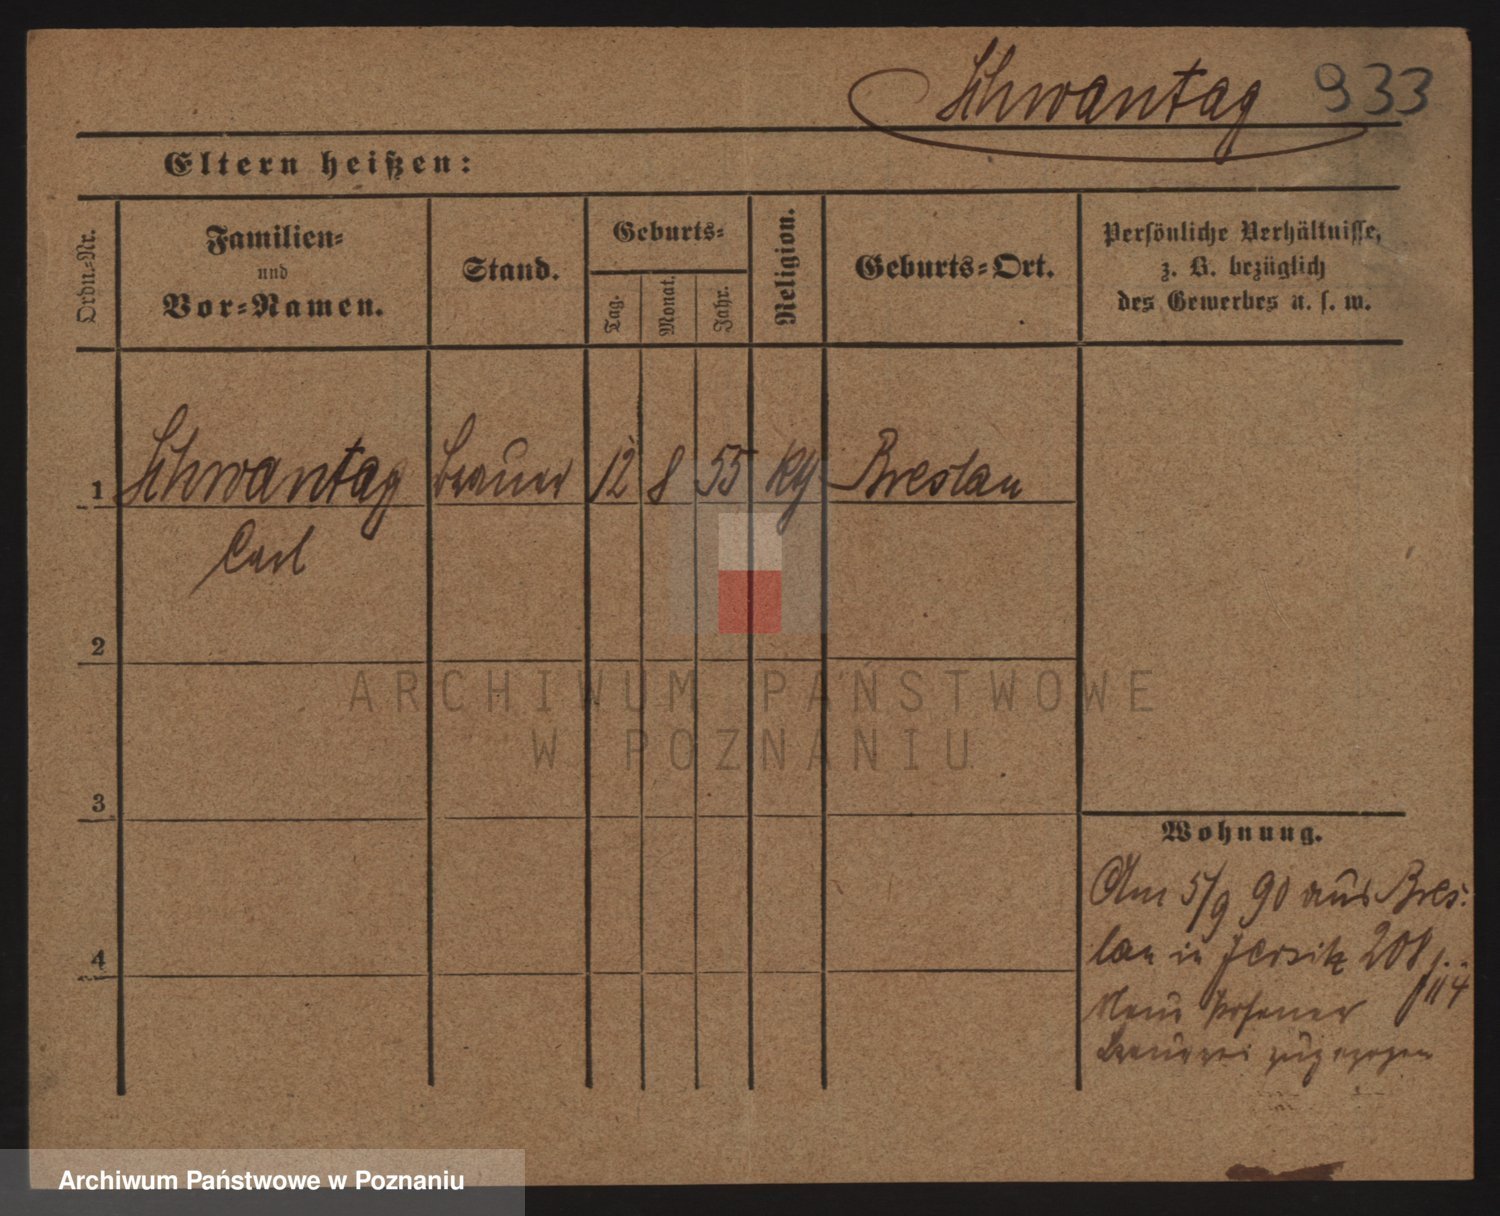 Schwantag 933
Eltern heißen:
Ordn.-Nr.
Familien-
und
Vor-Namen.
Stand.
Geburts-
Tag.
Monat.
Jahr.
Religion.
Geburts-Ort.
Persönliche Verhältnisse,
z. B. bezüglich
des Gewerbes u. s. w.
1 Schwantag Brauer 12 8 55 Breslau
Carl
2
ARCHIWUM PAŃSTWOWE
W POZNANIU
3
Wohnung.
Am 5/9 90 aus Bres-
4
lau in Jersitz 208
Neue Posener
Brauerei zugezogen
Archiwum Państwowe w Poznaniu